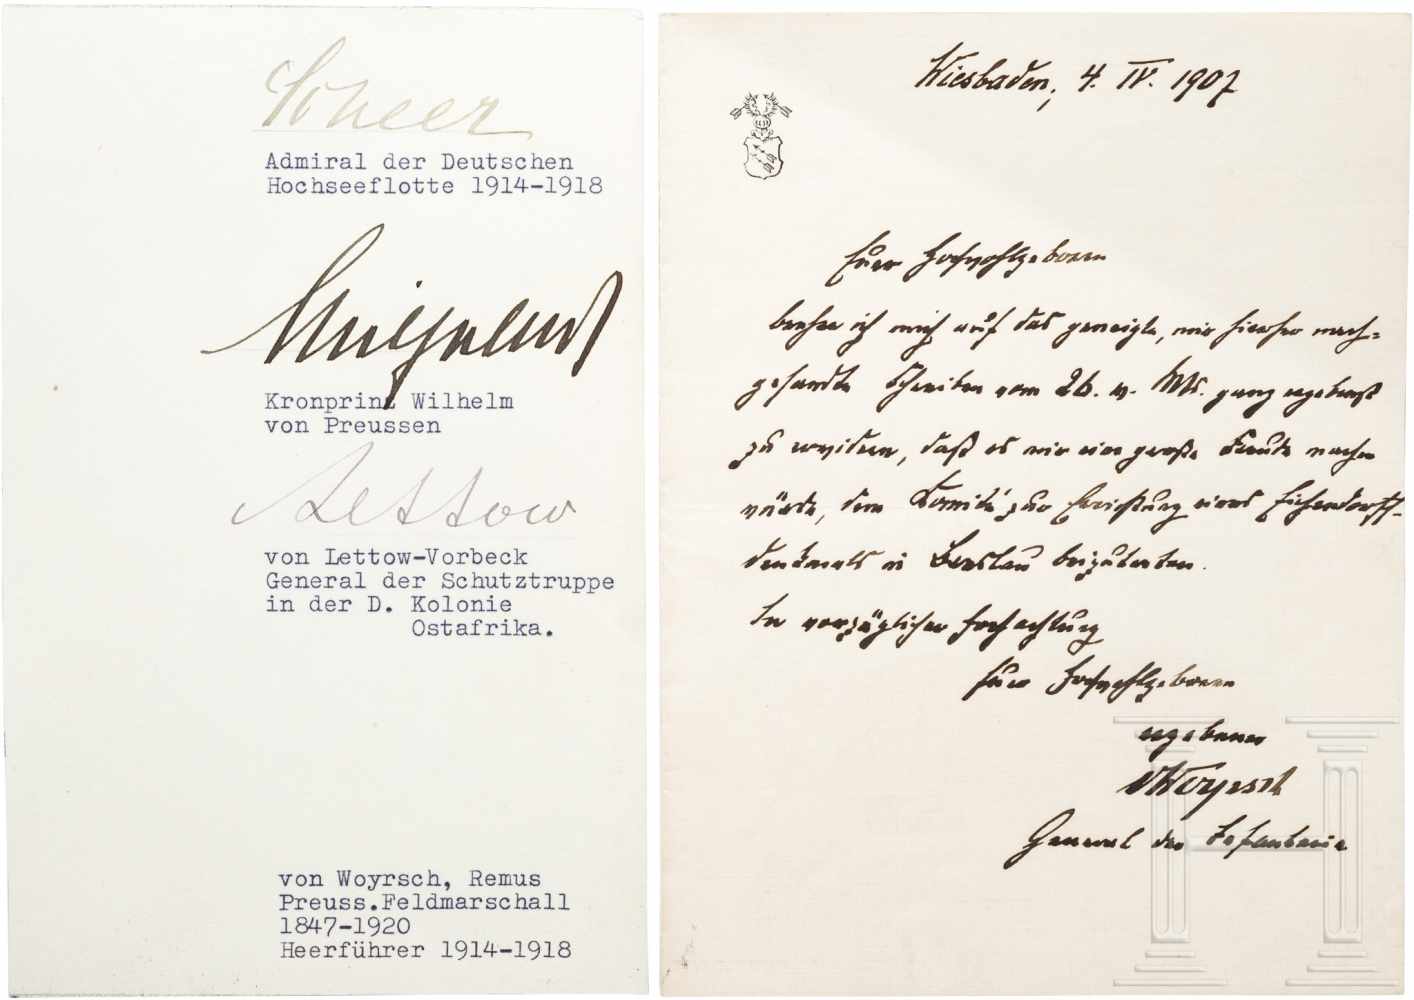 Scheer
Admiral der Deutschen
Hochseeflotte 1914-1918
Wilhelm
Kronprinz Wilhelm
von Preussen
Lettow
von Lettow-Vorbeck
General der Schutztruppe
in der D. Kolonie
Ostafrika.
von Woyrsch, Remus
Preuss.Feldmarschall
1847-1920
Heerführer 1914-1918
Wiesbaden, 4. IV. 1907
Euer Hochwohlgeboren
beehre ich mich auf das geneigte, mir hierher nach-
gesandte Schreiben vom 26. v. Mts. ganz ergebenst
zu erwidern, daß es mir eine große Freude machen
würde, dem Komité zur Errichtung eines Eichendorff-
denkmals in Breslau beizutreten.
In vorzüglicher Hochachtung
Euer Hochwohlgeboren
ergebener
vWoyrsch
General der Infanterie